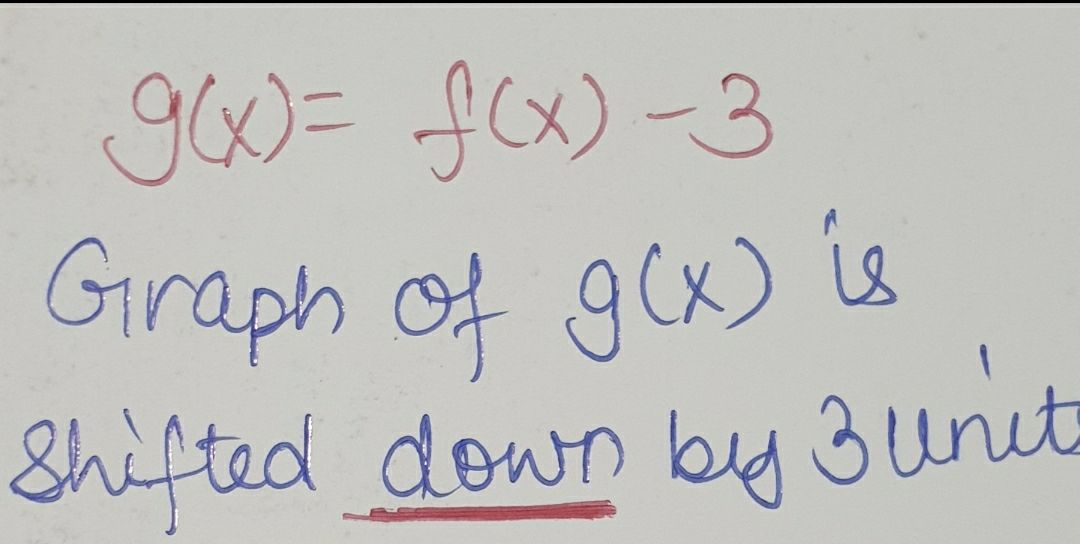 g(x)= f(x) -3
Graph of g(x) is
Shifted down by 3 units